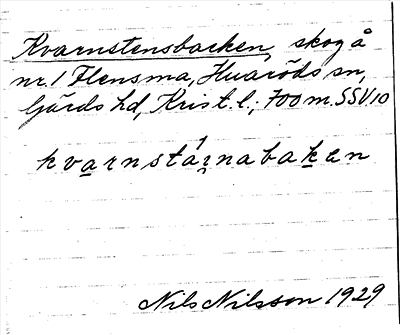 Kvarnstensbacken, skog å
nr. 1 Flensma, Huaröds sn,
Gärds hd, Krist. l.; 700 m. SSV 10
kvarnstáɪ̯nabakən
Nils Nilsson 1929